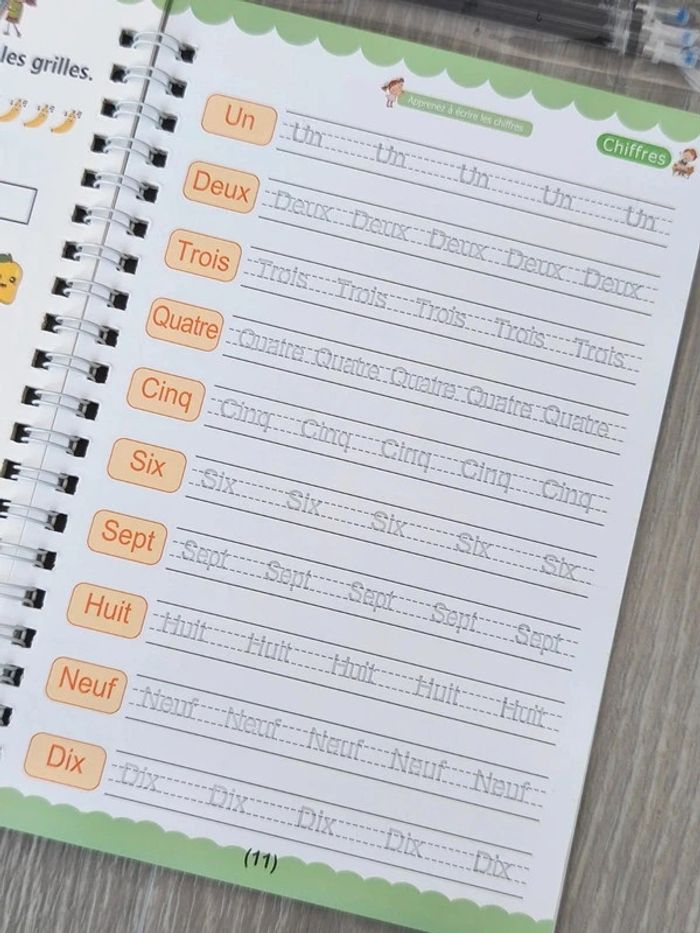 les grilles.
Apprenez à écrire les chiffres
Chiffres
Un Un Un Un Un Un
Deux Deux Deux Deux Deux Deux
Trois Trois Trois Trois Trois Trois
Quatre Quatre Quatre Quatre Quatre Quatre
Cinq Cinq Cinq Cinq Cinq Cinq
Six Six Six Six Six Six
Sept Sept Sept Sept Sept Sept
Huit Huit Huit Huit Huit Huit
Neuf Neuf Neuf Neuf Neuf Neuf
Dix Dix Dix Dix Dix Dix
(11)